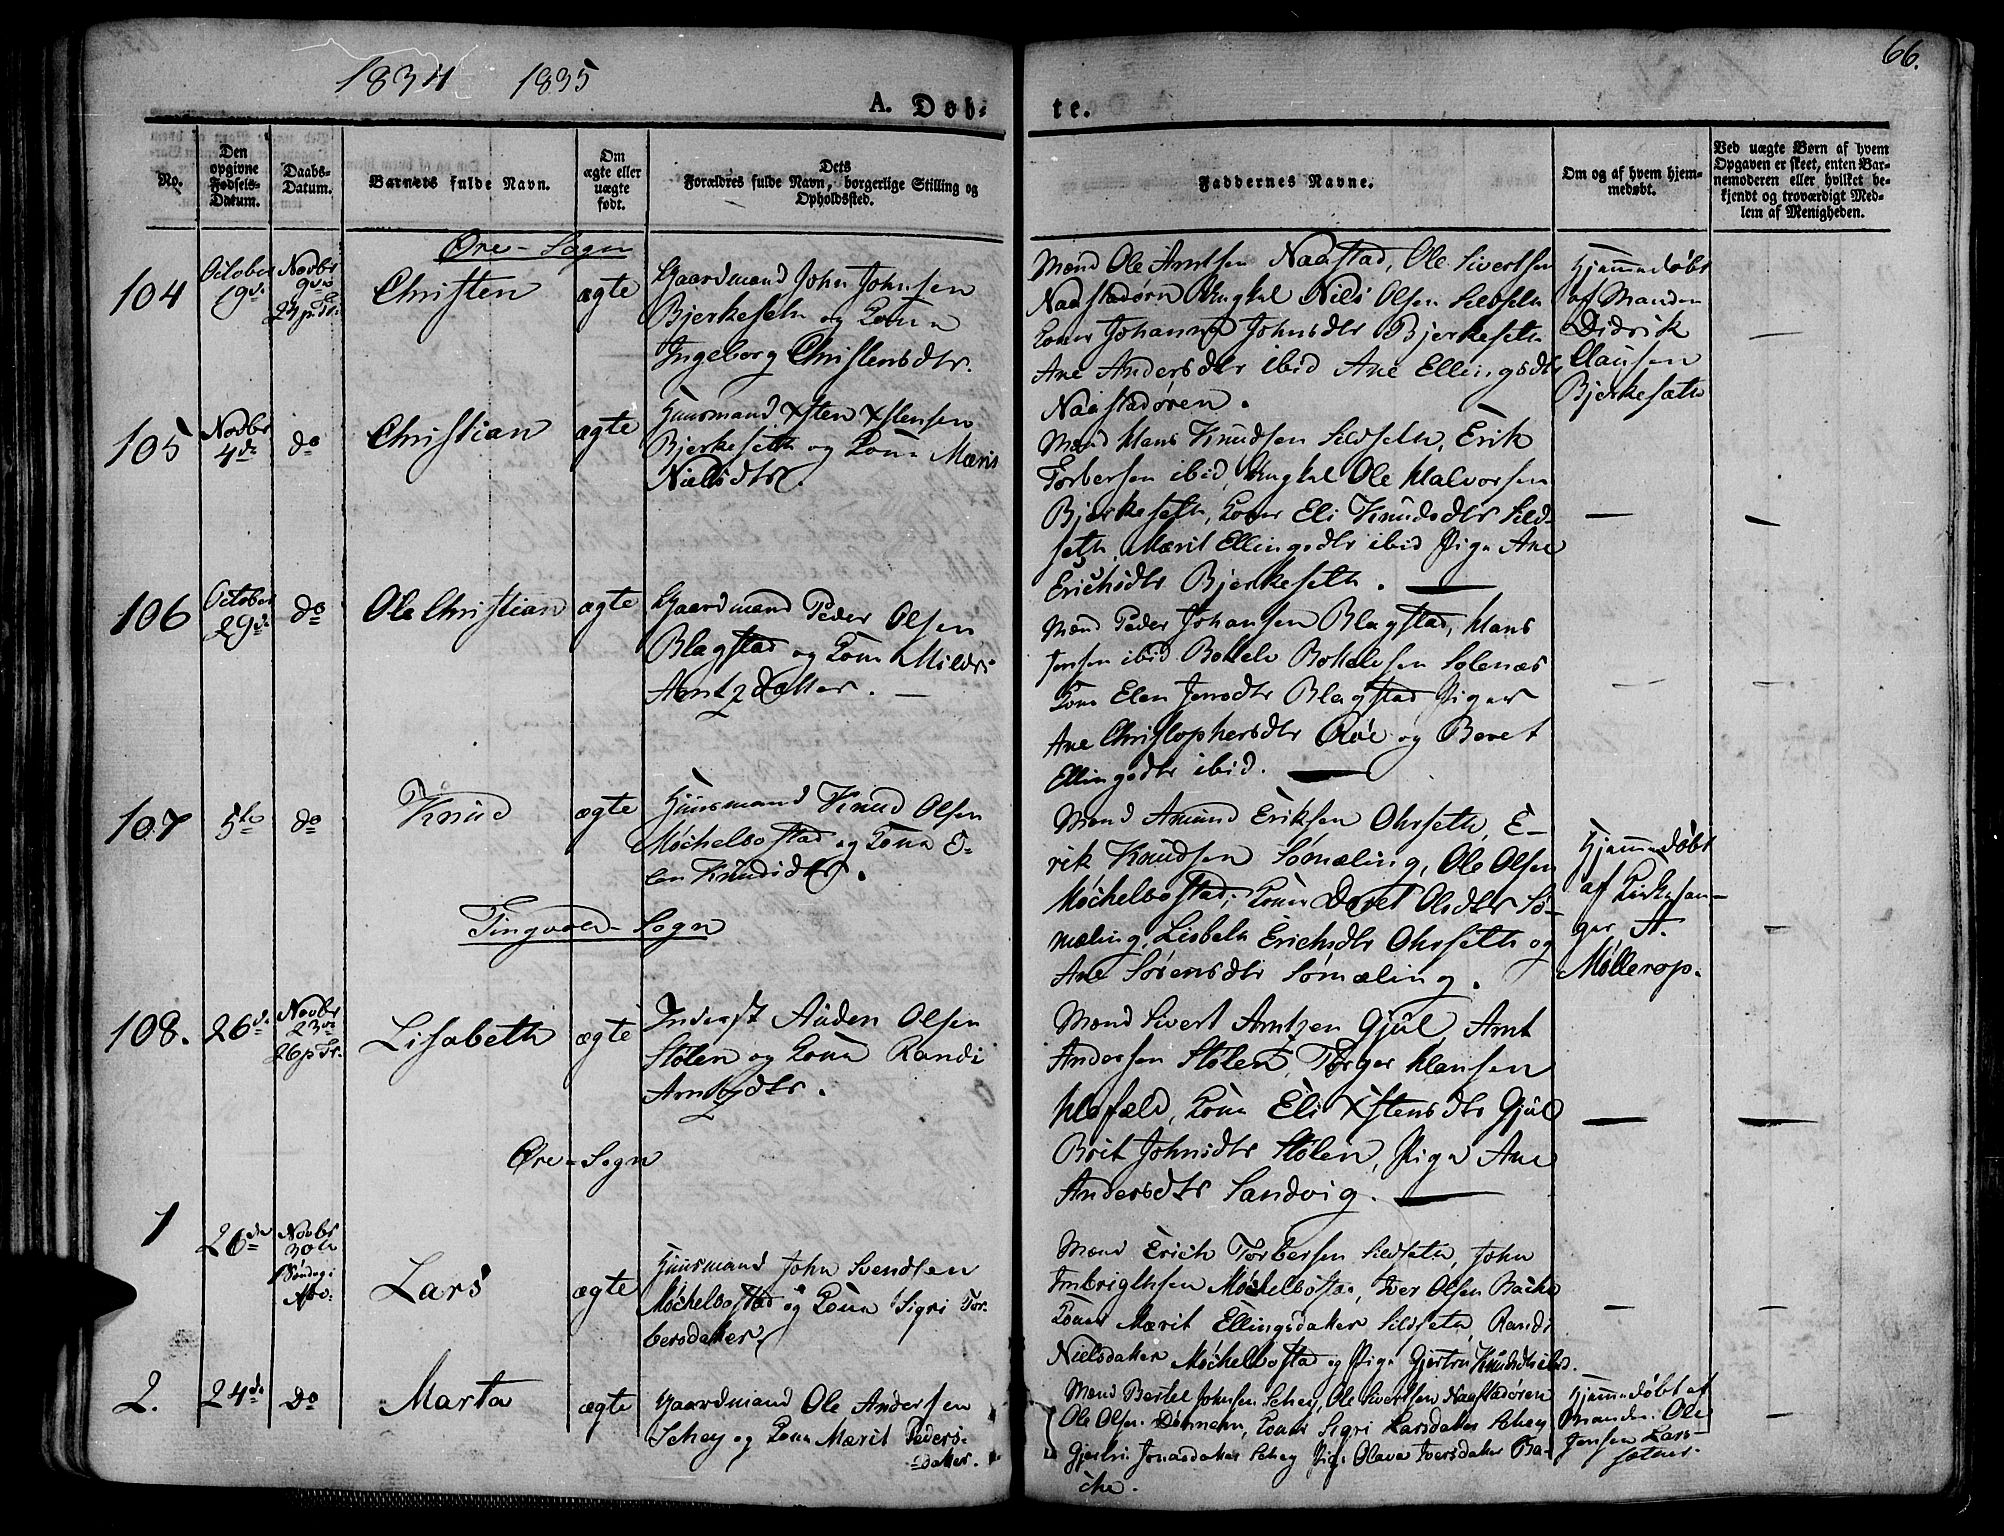 1834 1835
66.
A. Døb-
te.
No.
Den
opgivne
Fødsels-
Datum.
Daabs-
Datum.
Barnets fulde Navn.
Om
ægte eller
uægte
født.
Dets
Forældres fulde Navn, borgerlige Stilling og
Opholdssted.
Faddernes Navne.
Om og af hvem hjem-
medøbt.
Ved uægte Børn af hvem
Opgaven er skeet, enten Bar-
nemoderen eller hvilket be-
kjendt og troværdigt Med-
lem af Menigheden.
Øre-Sogn
104
October
19de
Novbr
9de
24 p. Tr.
Christen
ægte
Gaardmand John Johnsen
Bjerkeseth og Kone
Ingeborg Christensdtr.
Mænd Ole Arntsen Naastad, Ole Sivertsen
Naastadøren Ungkal Nils Olsen Sildseth
Koner Johanna Johnsdtr Bjerkeseth
Ane Andersdtr ibid Ane Ellingsdtr
Naastadøren.
Hjemmedøbt
af Manden
Didrik
Clausen
Bjerkesæth
105
Novbr
4de
do
Christian
ægte
Huusmand Xsten Xstensen
Bjerkeseth og Kone Marit
Nielsdtr.
Mænd Hans Knudsen Sildseth, Erik
Torbersen ibid, Ungkal Ole Halvorsen
Bjerkeseth, Koner Eli Knudsdtr Sild-
seth, Marit Ellingsdtr ibid Pige Ane
Erichsdtr Bjerkeseth.
106
October
29de
do
Ole Christian
ægte
Gaardmand Peder Olsen
Blagstad og Kone Mildri
Arntzdatter.
Mænd Peder Johansen Blagstad, Hans
Jensen ibid Bottele Bottelesen Solenæs
Kone Elen Jensdtr Blagstad Piger
Ane Christophersdtr Røe og Beret
Ellingsdtr ibid.
107
5te
do
Knud
ægte
Huusmand Knud Olsen
Møchelbostad og Kone E-
len Knudsdtr.
Mænd Amund Eriksen Ohrseth, E-
rik Knudsen Sømæling, Ole Olsen
Møchelbostad, Koner Doret Olsdtr Sø-
mæling, Lisbeth Erichsdtr Ohrseth og
Ane Sørensdtr Sømæling.
Hjemmedøbt
af Kirkesan-
ger A.
Møllerop.
Tingvold-Sogn
108.
26de
Novbr
23de
26 p. Tr.
Lisabeth
ægte
Inderst Auden Olsen
Stølen og Kone Randi
Arntzdtr.
Mænd Sivert Arntzen Gjül, Arnt
Andersen Stølen, Torger Hansen
Hafæld, Kone Eli Xstensdtr Gjül
Brit Johnsdtr Stølen, Pige Ane
Andersdtr Sandvig.
Øre-Sogn
1
26de
Novbr
30te
1 Søndag i
Adv.
Lars
ægte
Huusmand John Svendsen
Møchelbostad og Kone Sigri Tor-
bersdatter
Mænd Erich Torbersen Sildseth, John
Imbrigtsen Møchelbostad, Iver Olsen Bache
Koner Marit Ellingsdatter Sildseth, Randi
Nielsdatter Møchelbostad og Pige Gjertru Knudsdtr ibid.
2.
24de
do
Marta
ægte
Gaardmand Ole Andersen
Schey og Kone Marit Peders-
datter.
Mænd Bertel Johnsen Schey, Ole Sivertsen Naastadøren
Ole Olsen Dønnem, Koner Sigri Larsdatter Schey
Gjertru Jonasdatter Schey Pige Olava Iversdatter Ba-
che.
Hjemmedøbt af
Manden Ole
Jensen Lars-
sætner